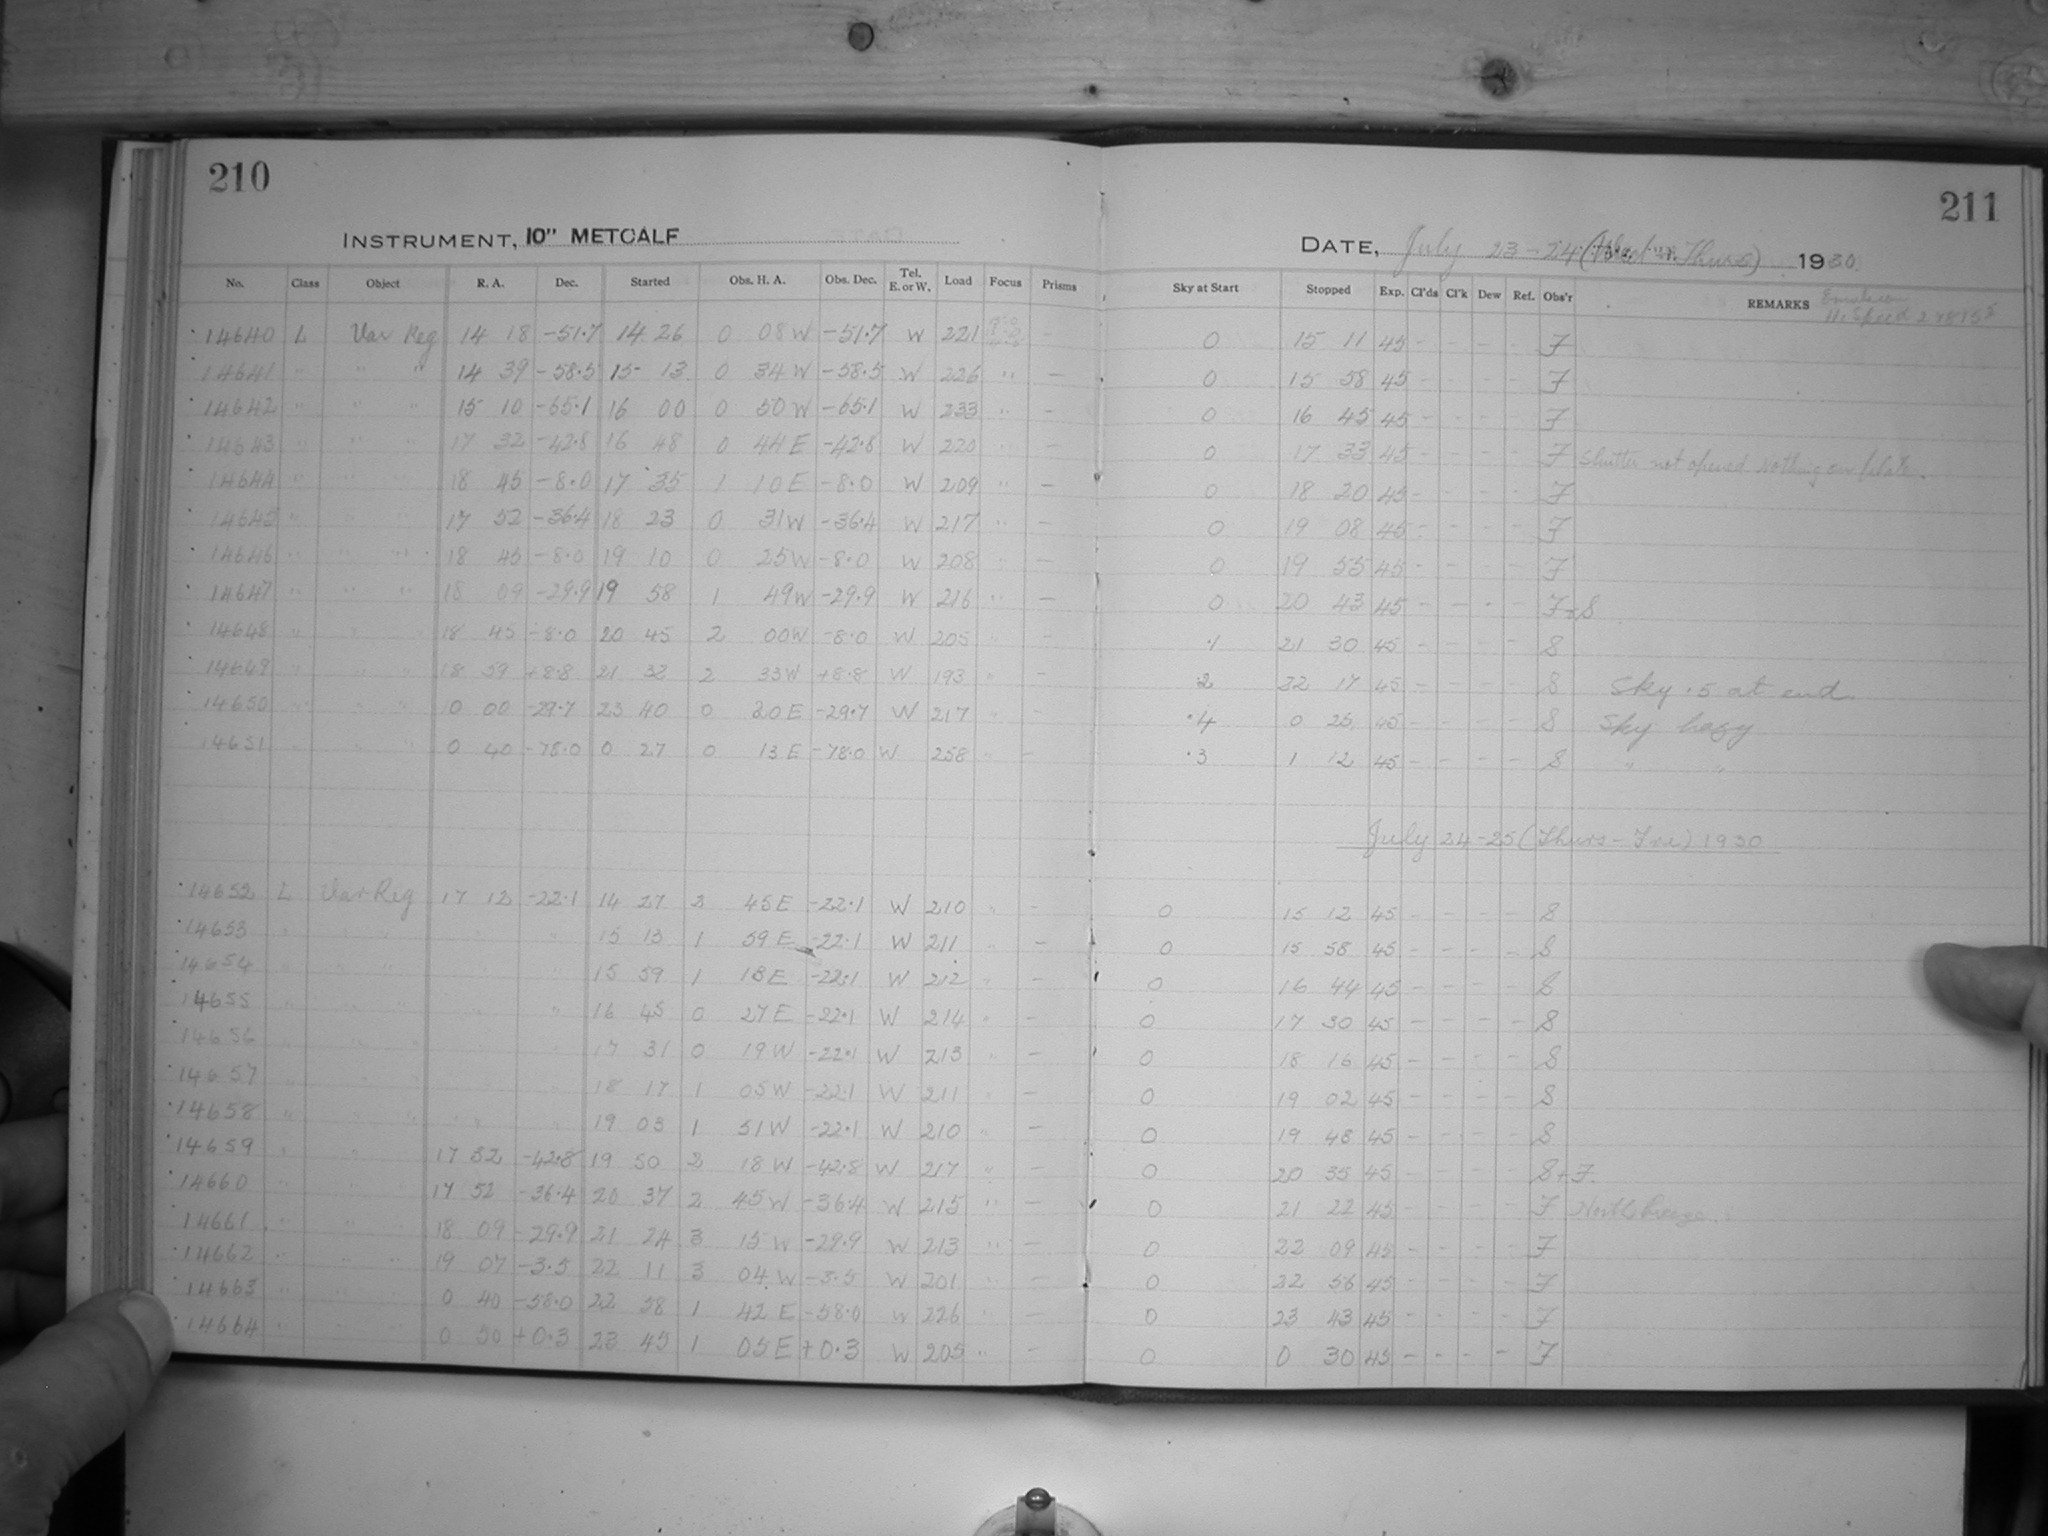 210
211
INSTRUMENT, 10" METCALF
DATE, July 23-24 (Wed - Thurs) 1930
No. Class Object R. A. Dec. Started Obs. H. A. Obs. Dec. Tel. E. or W. Load Focus Prisms Sky at Start Stopped Exp. Cl'ds Cl'k Dew Ref. Obs'r REMARKS
14640 L Var Reg 14 18 -51.7 14 26 0 08 W -51.7 W 221 - 0 15 11 45 - - - - F
14641 " " " 14 39 -58.5 15 13 0 34 W -58.5 W 226 " - 0 15 58 45 - - - - F
14642 " " " 15 10 -65.1 16 00 0 50 W -65.1 W 233 " - 0 16 45 45 - - - - F
14643 " " " 17 32 -42.8 16 48 0 44 E -42.8 W 220 " - 0 17 33 45 - - - - F Shutter not opened Nothing on plate.
14644 " " " 18 45 -8.0 17 35 1 10 E -8.0 W 209 " - 0 18 20 45 - - - - F
14645 " " " 17 52 -36.4 18 23 0 31 W -36.4 W 217 " - 0 19 08 45 - - - - F
14646 " " " 18 45 -8.0 19 10 0 25 W -8.0 W 208 " - 0 19 55 45 - - - - F
14647 " " " 18 09 -29.9 19 58 1 49 W -29.9 W 216 " - 0 20 43 45 - - - - F+S
14648 " " " 18 45 -8.0 20 45 2 00 W -8.0 W 205 " - .1 21 30 45 - - - - S
14649 " " " 18 59 +8.8 21 32 2 33 W +8.8 W 193 " - .2 22 17 45 - - - - S Sky .5 at end
14650 " " " 0 00 -29.7 23 40 0 20 E -29.7 W 217 " - .4 0 25 45 - - - - S Sky hazy
14651 " " " 0 40 -78.0 0 27 0 13 E -78.0 W 258 " - .3 1 12 45 - - - - S " "
July 24-25 (Thurs - Fri) 1930
14652 L Var Reg 17 12 -22.1 14 27 2 45 E -22.1 W 210 " - 0 15 12 45 - - - - S
14653 " " " " " 15 13 1 59 E -22.1 W 211 " - 0 15 58 45 - - - - S
14654 " " " " " 15 59 1 13 E -22.1 W 212 " - 0 16 44 45 - - - - S
14655 " " " " " 16 45 0 27 E -22.1 W 214 " - 0 17 30 45 - - - - S
14656 " " " " " 17 31 0 19 W -22.1 W 213 " - 0 18 16 45 - - - - S
14657 " " " " " 18 17 1 05 W -22.1 W 211 " - 0 19 02 45 - - - - S
14658 " " " " " 19 03 1 51 W -22.1 W 210 " - 0 19 48 45 - - - - S
14659 " " " 17 32 -42.8 19 50 2 18 W -42.8 W 217 " - 0 20 35 45 - - - - S+F
14660 " " " 17 52 -36.4 20 37 2 45 W -36.4 W 215 " - 0 21 22 45 - - - - F North breeze.
14661 " " " 18 09 -29.9 21 24 3 15 W -29.9 W 213 " - 0 22 09 45 - - - - F
14662 " " " 19 07 -3.5 22 11 3 04 W -3.5 W 201 " - 0 22 56 45 - - - - F
14663 " " " 0 40 -58.0 22 58 1 42 E -58.0 W 226 " - 0 23 43 45 - - - - F
14664 " " " 0 50 +0.3 23 45 1 05 E +0.3 W 205 " - 0 0 30 45 - - - - F